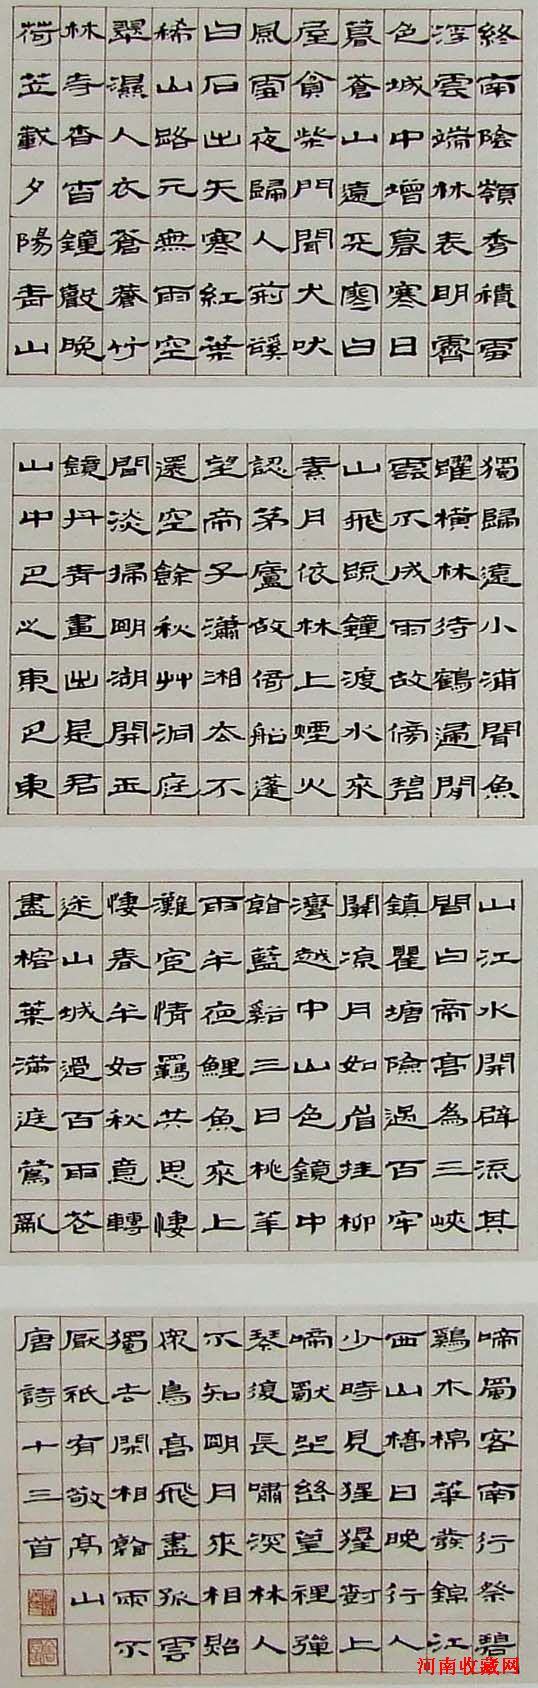 終南陰嶺秀積雪
浮雲端林表明霽
色城中增暮寒日
暮蒼山遠天寒白
屋貧柴門聞犬吠
風雪夜歸人荊谿
白石出天寒紅葉
稀山路元無雨空
翠濕人衣蒼蒼竹
林寺杳杳鐘聲晚
荷笠載夕陽青山
獨歸遠小浦聞魚
躍橫林待鶴歸閒
雲不成雨故傍碧
山飛疏鐘渡水來
素月依林上煙火
認茅廬故倚船蓬
望帝子瀟湘去不
還空餘秋艸洞庭
間淡掃明湖開玉
鏡丹青畫出是君
山中巴之東巴東
山江水開辟流其
間白帝高為三峽
鎮瞿塘險過百牢
關涼月如眉挂柳
灣越中山色鏡中
看藍谿三日桃華
雨半夜鯉魚來上
灘宦情羈共思悽
悽春半如秋意轉
迷山城過百雨花
盡榕葉滿庭鶯亂
啼蜀客南行祭碧
鷄木棉華發錦江
西山橋日晚行人
少時見猩猩樹上
啼獨坐幽篁裡彈
琴復長嘯深林人
不知明月來相照
眾鳥高飛盡孤雲
獨去閑相看兩不
厭衹有敬亭山
唐詩十三首
河南收藏网